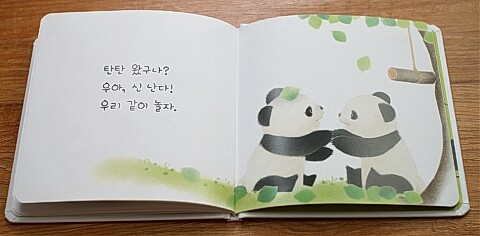 탄탄 왔구나?
우아, 신 난다!
우리 같이 놀자.